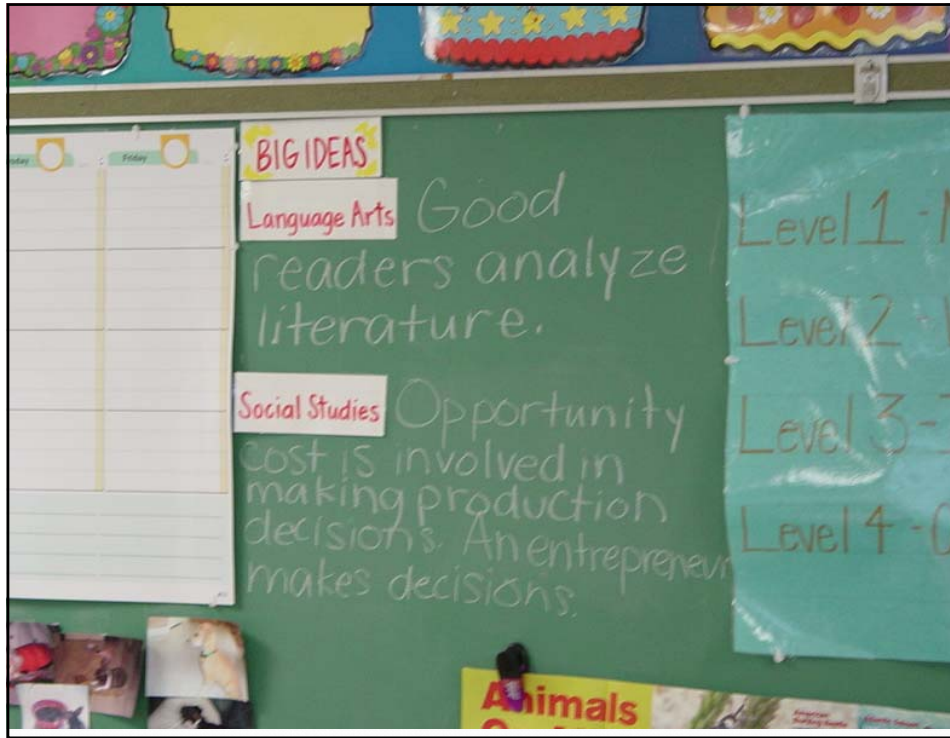 Friday
BIG IDEAS
Language Arts Good
readers analyze
literature.
Social Studies Opportunity
cost is involved in
making production
decisions. An entrepreneur
makes decisions.
Level 1 -
Level 2 -
Level 3 -
Level 4 -
Animals